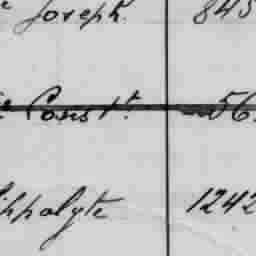 Joseph. 845
Const. 56
ippolyte 1242